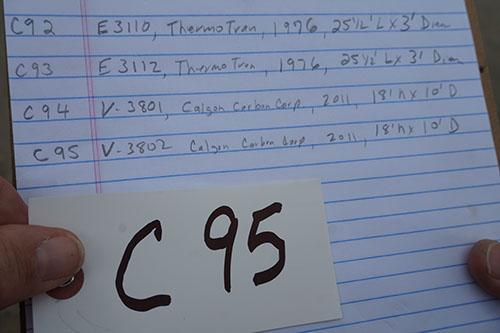 C92 E3110, ThermoTran, 1976, 25½' L x 3' Diam
C93 E3112, ThermoTran, 1976, 25½' L x 3' Diam
C94 V-3801, Calgon Carbon Corp, 2011, 18' h x 10' D
C95 V-3802 Calgon Carbon Corp, 2011, 18' h x 10' D
C 95